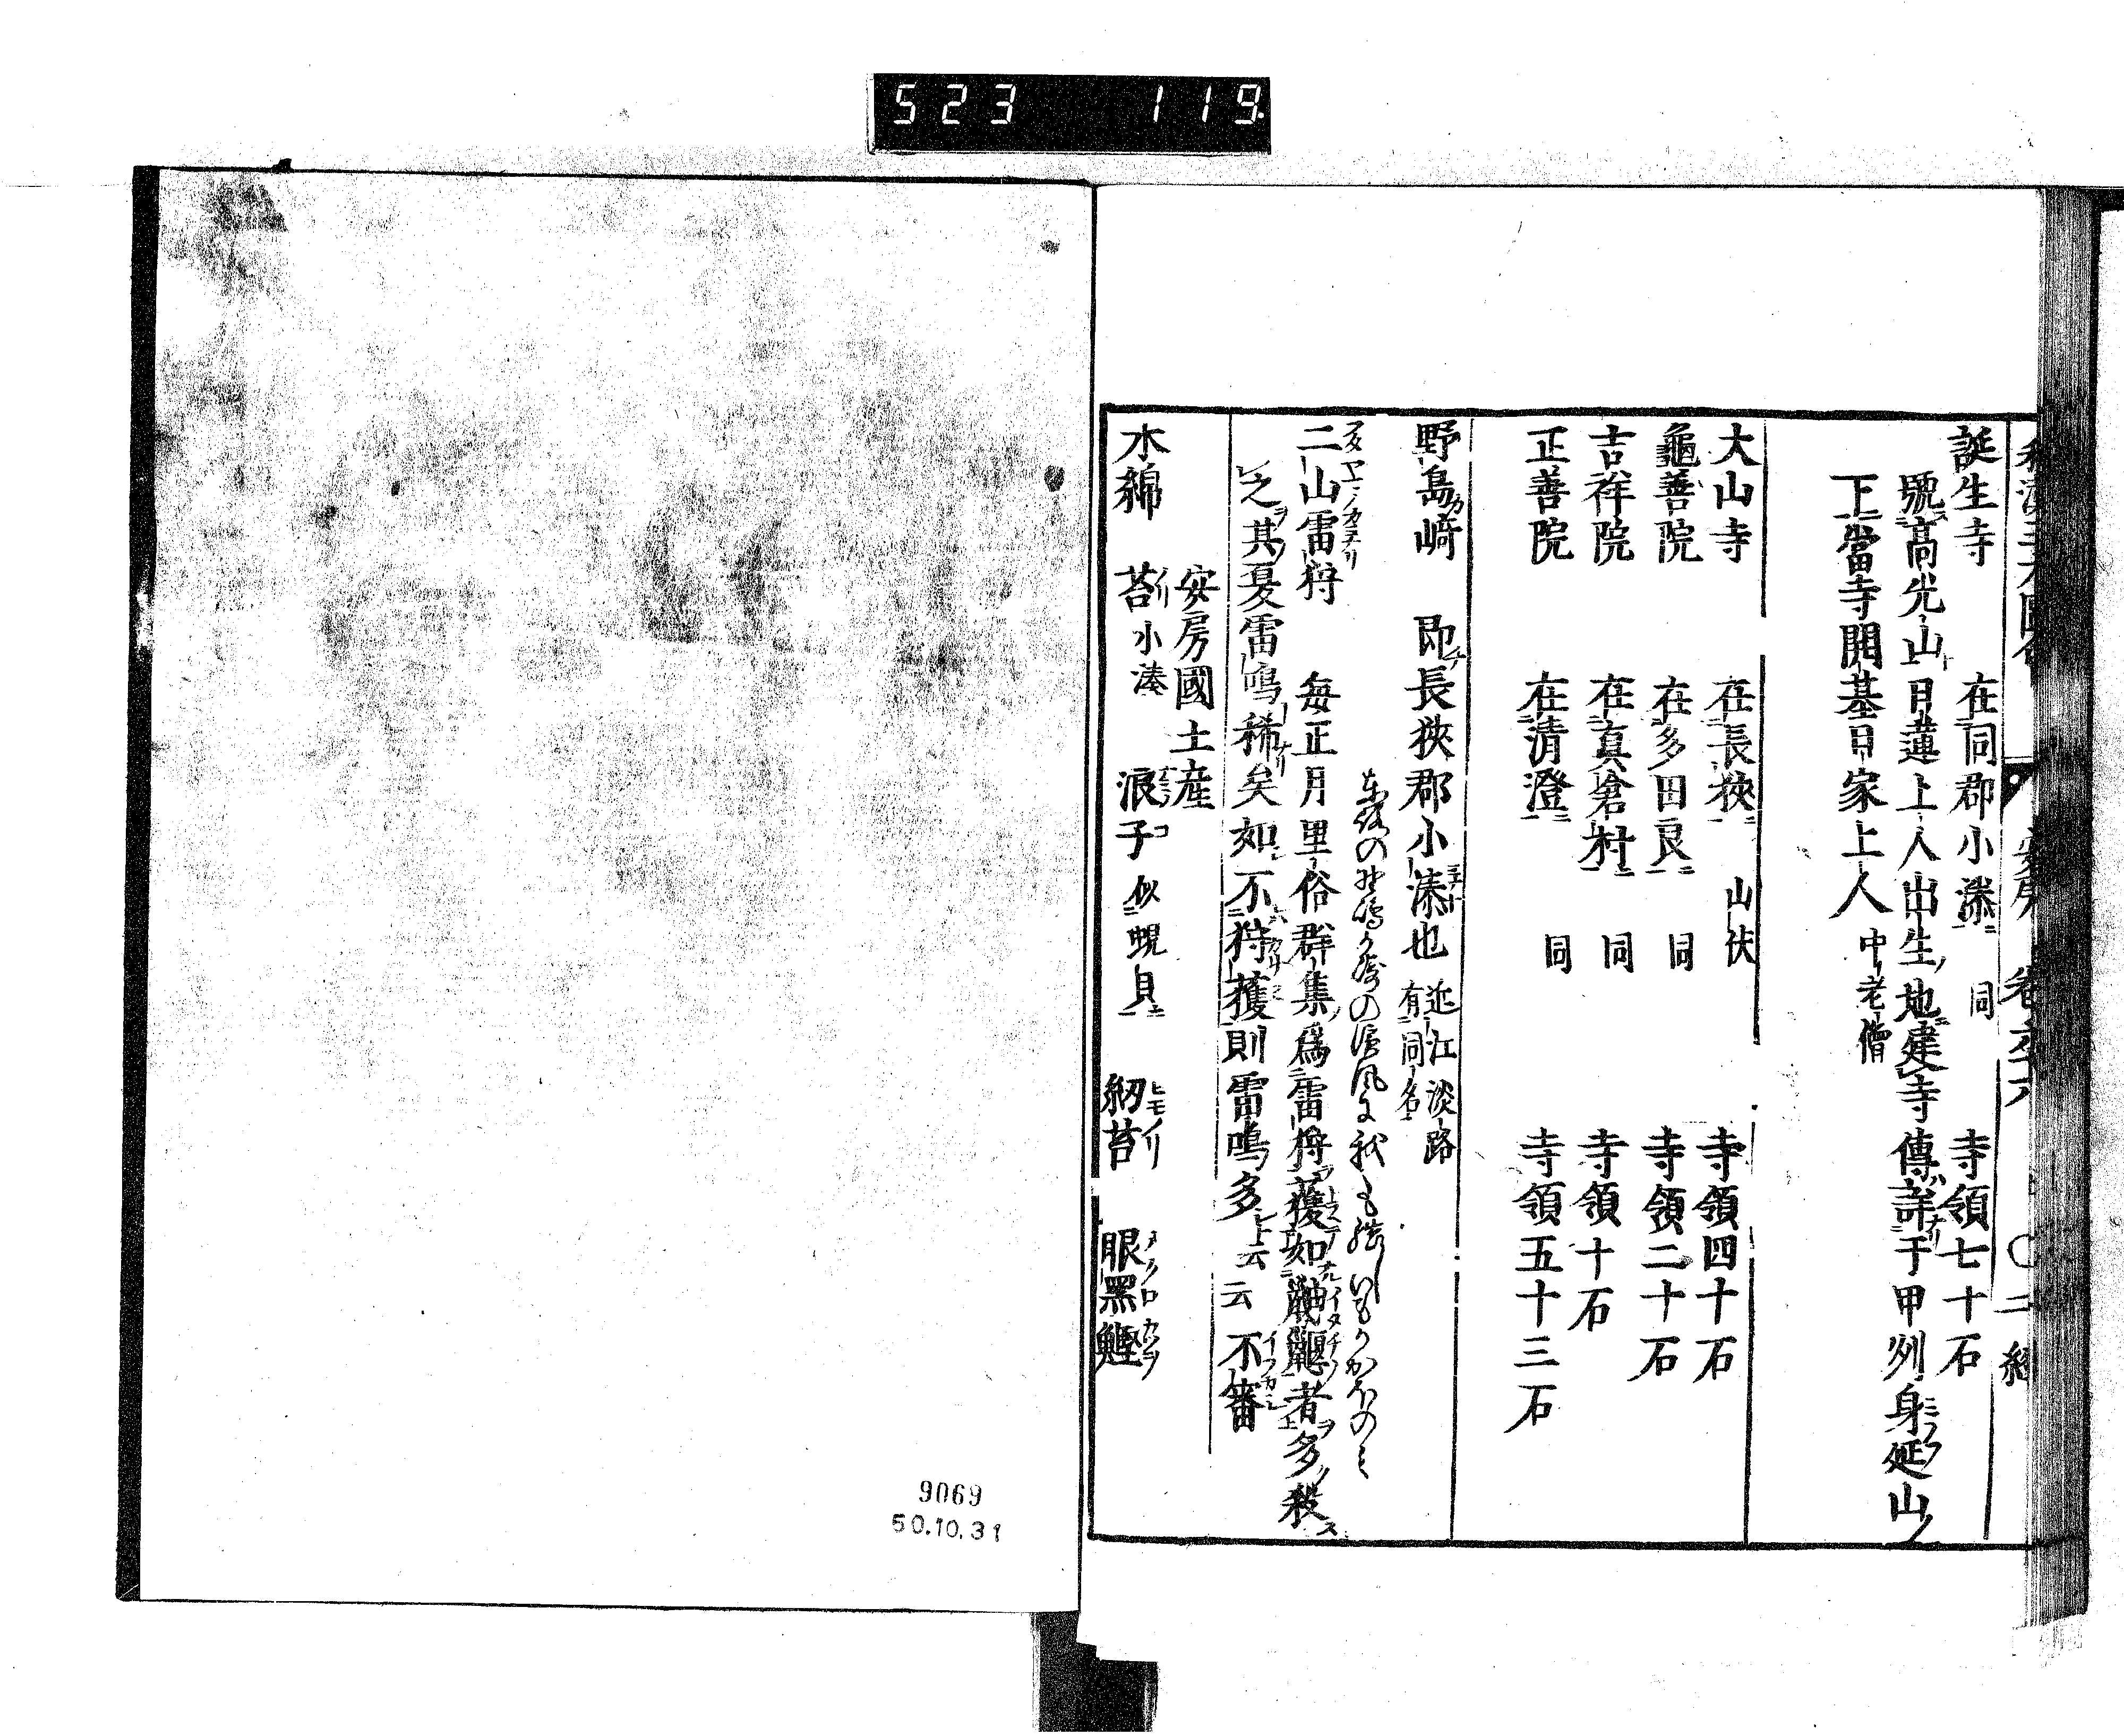 523 119
誕生寺 在同郡小湊 同 寺領七十石
號高光山日蓮上人出生地建寺傳詳于甲州身延山
下當寺開基日家上人 中老僧
大山寺 在長狹 山伏 寺領四十石
龜善院 在多田良 同 寺領二十石
吉祥院 在眞倉村 同 寺領十石
正善院 在清澄 同 寺領五十三石
野島崎 即長狹郡小湊也 近江淡路
有同名
二山雷狩 毎正月里俗群集爲雷狩獲如鼬鼴者多殺
之其夏雷鳴稀矣如不狩獲則雷鳴多 云云不審
安房國土産
木綿 苔 小湊 浪子 似蜆貝 紉苔 眼黑鰹
9069
50.10.31